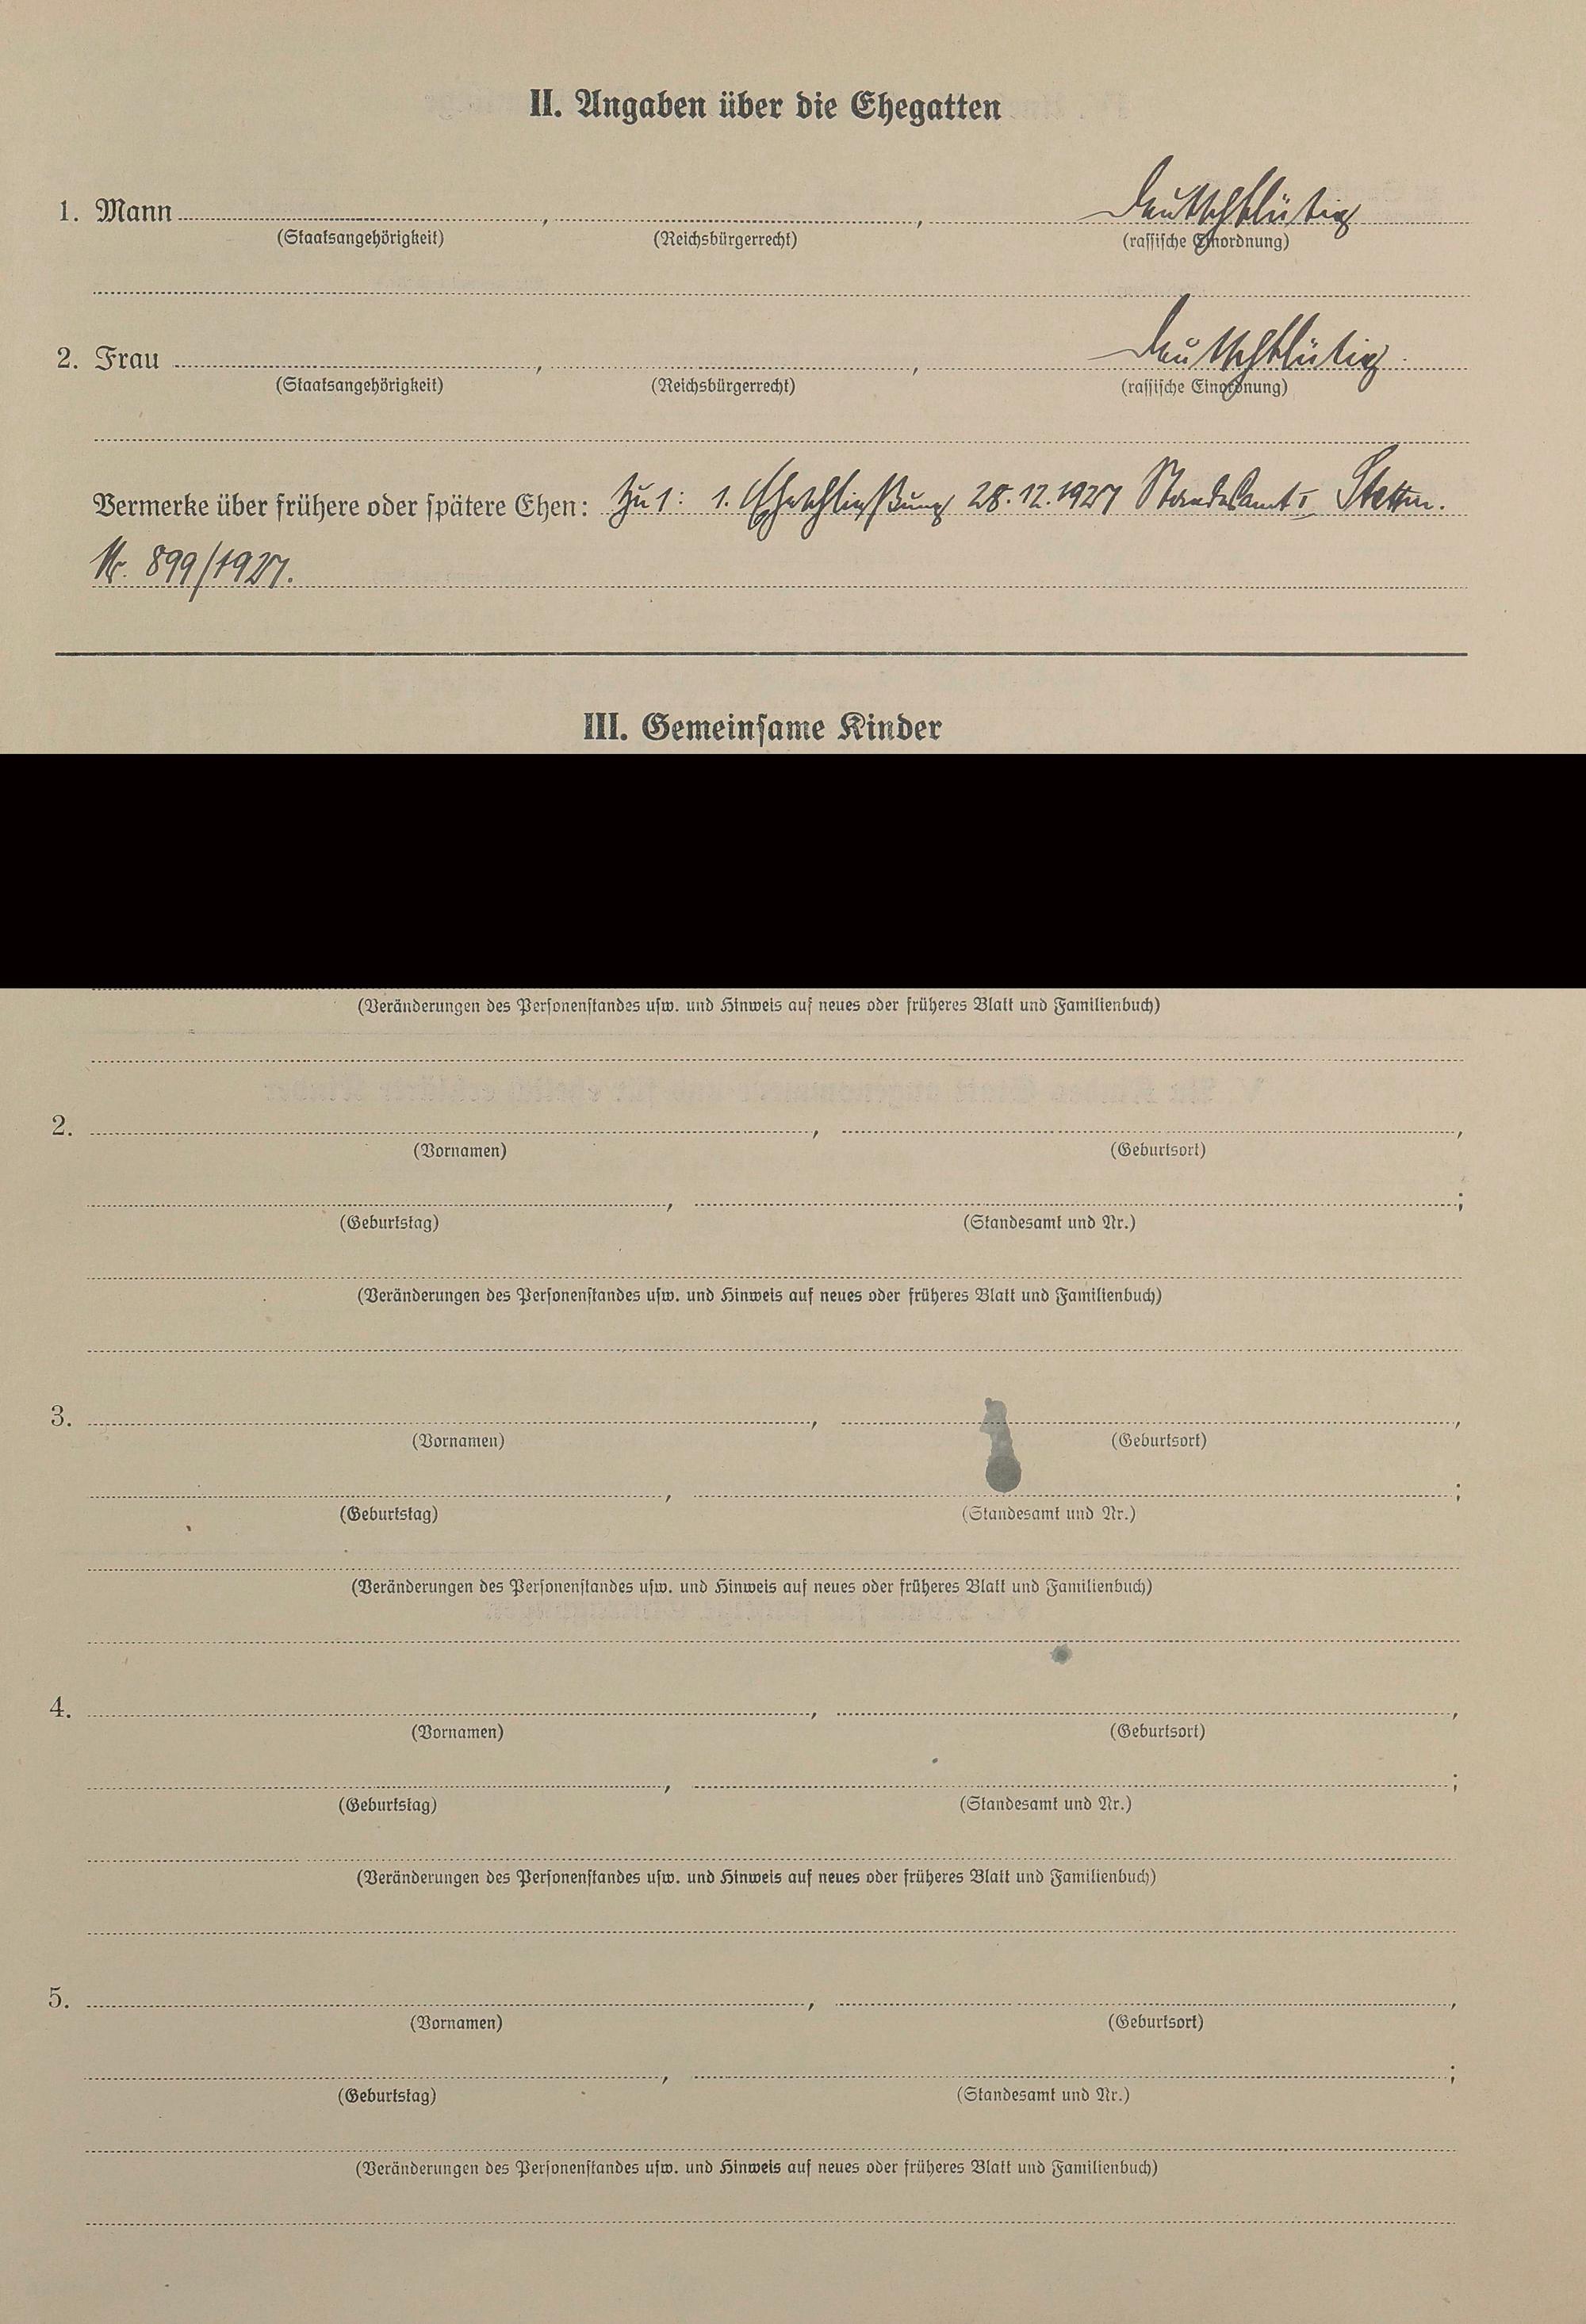 II. Angaben über die Ehegatten
1. Mann , , deutschblütig
(Staatsangehörigkeit) (Reichsbürgerrecht) (rassische Einordnung)
2. Frau , , deutschblütig.
(Staatsangehörigkeit) (Reichsbürgerrecht) (rassische Einordnung)
Vermerke über frühere oder spätere Ehen: Zu 1: 1. Eheschließung 28.12.1927 Standesamt I Stettin.
Nr. 899/1927.
III. Gemeinsame Kinder
(Veränderungen des Personenstandes usw. und Hinweis auf neues oder früheres Blatt und Familienbuch)
2. , ,
(Vornamen) (Geburtsort)
, ;
(Geburtstag) (Standesamt und Nr.)
(Veränderungen des Personenstandes usw. und Hinweis auf neues oder früheres Blatt und Familienbuch)
3. , ,
(Vornamen) (Geburtsort)
, ;
(Geburtstag) (Standesamt und Nr.)
(Veränderungen des Personenstandes usw. und Hinweis auf neues oder früheres Blatt und Familienbuch)
4. , ,
(Vornamen) (Geburtsort)
, ;
(Geburtstag) (Standesamt und Nr.)
(Veränderungen des Personenstandes usw. und Hinweis auf neues oder früheres Blatt und Familienbuch)
5. , ,
(Vornamen) (Geburtsort)
, ;
(Geburtstag) (Standesamt und Nr.)
(Veränderungen des Personenstandes usw. und Hinweis auf neues oder früheres Blatt und Familienbuch)